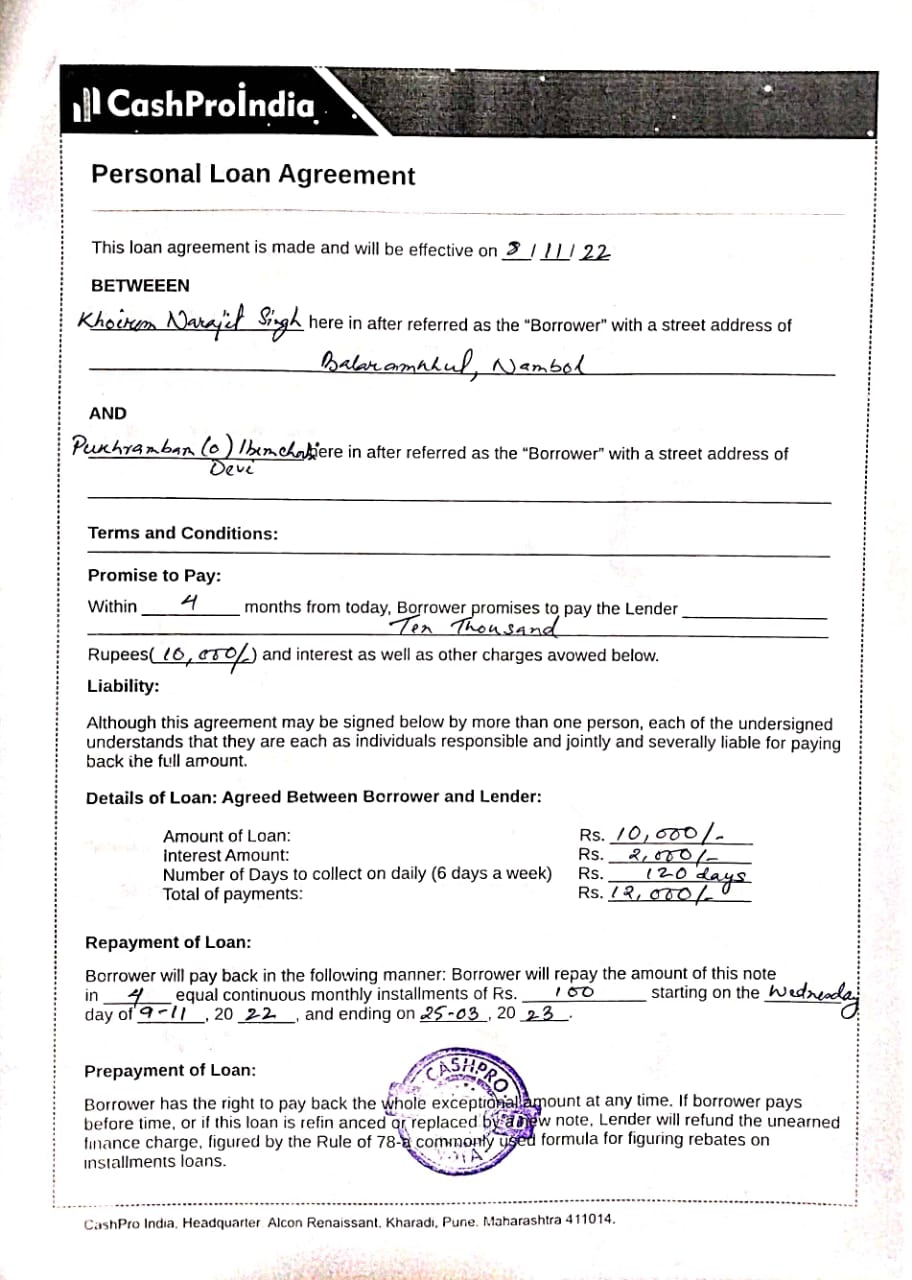 CashProIndia
Personal Loan Agreement
This loan agreement is made and will be effective on 8/11/22
BETWEEEN
Khoirom Narajit Singh here in after referred as the “Borrower” with a street address of
Balaramkhul, Nambol
AND
Pukhrambam (o) Ibemchobi here in after referred as the “Borrower” with a street address of
Devi
Terms and Conditions:
Promise to Pay:
Within 4 months from today, Borrower promises to pay the Lender
Ten Thousand
Rupees( 10,000/-) and interest as well as other charges avowed below.
Liability:
Although this agreement may be signed below by more than one person, each of the undersigned
understands that they are each as individuals responsible and jointly and severally liable for paying
back the full amount.
Details of Loan: Agreed Between Borrower and Lender:
Amount of Loan: Rs. 10,000/-
Interest Amount: Rs. 2,000/-
Number of Days to collect on daily (6 days a week) Rs. 120 days
Total of payments: Rs. 12,000/-
Repayment of Loan:
Borrower will pay back in the following manner: Borrower will repay the amount of this note
in 4 equal continuous monthly installments of Rs. 100 starting on the Wednesday
day of 9-11, 20 22, and ending on 25-03, 20 23.
Prepayment of Loan:
CASHPRO
Borrower has the right to pay back the whole exceptional amount at any time. If borrower pays
before time, or if this loan is refin anced or replaced by a new note, Lender will refund the unearned
finance charge, figured by the Rule of 78-a commonly used formula for figuring rebates on
installments loans.
CashPro India, Headquarter Alcon Renaissant, Kharadi, Pune, Maharashtra 411014.